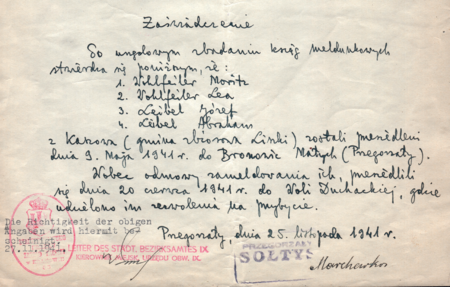 Zaświadczenie
Po urzędowym zbadaniu ksiąg meldunkowych
stwierdza się poniższym, że:
1. Wohlfeiler Moritz
2. Wohlfeiler Lea
3. Leibel Józef
4. Leibel Abraham
z Kaszowa (gmina zbiorowa Liszki) zostali przesiedleni
dnia 9. Maja 1941 r. do Bronowic Małych (Przegorzały).
Wobec odmowy zameldowania ich, przesiedlili
się dnia 20 czerwca 1941 r. do Woli Duchackiej, gdzie
udzielono im zezwolenia na przybycie.
Przegorzały, dnia 25. listopada 1941 r.
Die Richtigkeit der obigen
Angaben wird hiermit be-
scheinigt.
27.11.1941.
LEITER DES STÄDT. BEZIRKSAMTES IX
KIEROWNIK MIEJSK. URZĘDU OBW. IX.
PRZEGORZAŁY
SOŁTYS
Marchewka